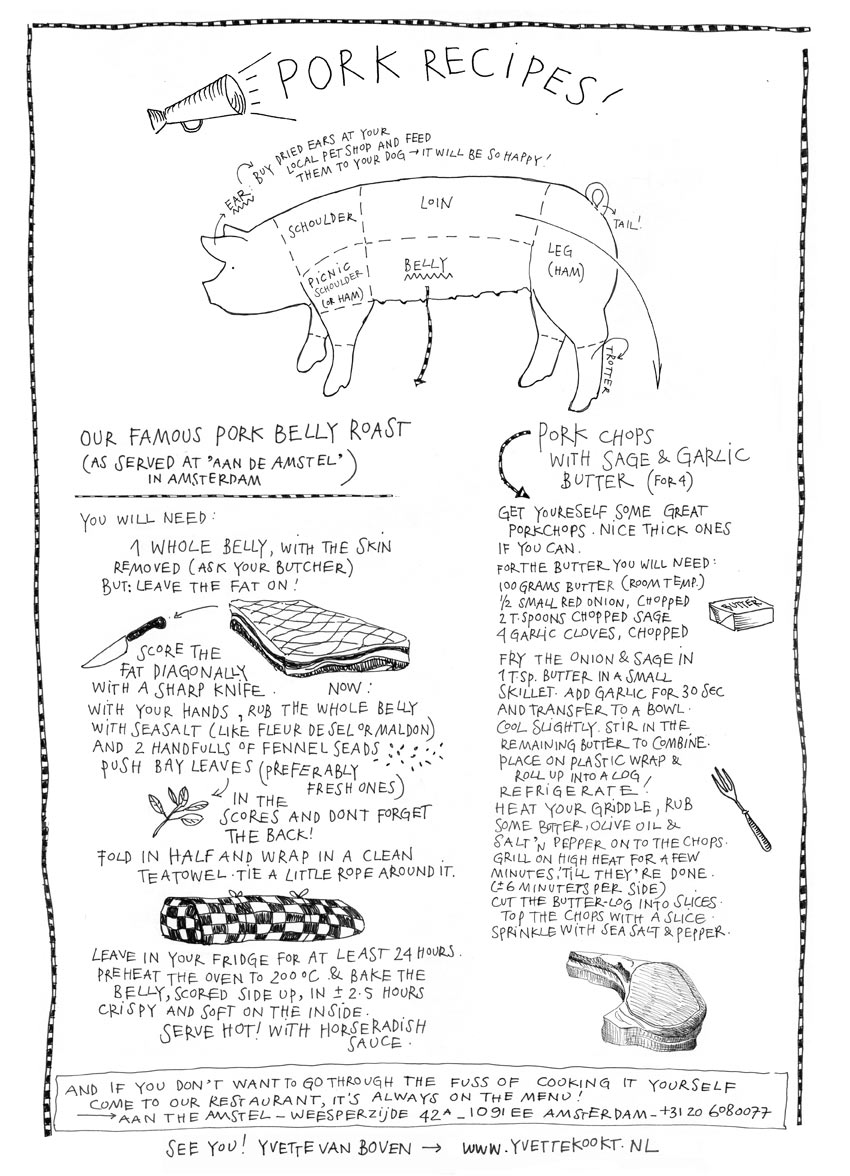 PORK RECIPES!
EAR: BUY DRIED EARS AT YOUR
LOCAL PETSHOP AND FEED
THEM TO YOUR DOG → IT WILL BE SO HAPPY!
SCHOULDER
LOIN
TAIL!
PICNIC
SCHOULDER
(OR HAM)
BELLY
LEG
(HAM)
TROTTER
OUR FAMOUS PORK BELLY ROAST
(AS SERVED AT 'AAN DE AMSTEL')
IN AMSTERDAM
YOU WILL NEED:
1 WHOLE BELLY, WITH THE SKIN
REMOVED (ASK YOUR BUTCHER)
BUT: LEAVE THE FAT ON!
SCORE THE
FAT DIAGONALLY
WITH A SHARP KNIFE. NOW:
WITH YOUR HANDS, RUB THE WHOLE BELLY
WITH SEASALT (LIKE FLEUR DE SEL OR MALDON)
AND 2 HANDFULLS OF FENNEL SEADS
PUSH BAY LEAVES (PREFERABLY
FRESH ONES)
IN THE
SCORES AND DONT FORGET
THE BACK!
FOLD IN HALF AND WRAP IN A CLEAN
TEATOWEL. TIE A LITTLE ROPE AROUND IT.
LEAVE IN YOUR FRIDGE FOR AT LEAST 24 HOURS.
PREHEAT THE OVEN TO 200°C & BAKE THE
BELLY, SCORED SIDE UP, IN ± 2.5 HOURS
CRISPY AND SOFT ON THE INSIDE.
SERVE HOT! WITH HORSERADISH
SAUCE.
PORK CHOPS
WITH SAGE & GARLIC
BUTTER (FOR 4)
GET YOURESELF SOME GREAT
PORKCHOPS. NICE THICK ONES
IF YOU CAN.
FOR THE BUTTER YOU WILL NEED:
100 GRAMS BUTTER (ROOM TEMP.)
1/2 SMALL RED ONION, CHOPPED
2 T.SPOONS CHOPPED SAGE
4 GARLIC CLOVES, CHOPPED
BUTTER
FRY THE ONION & SAGE IN
1 TSP. BUTTER IN A SMALL
SKILLET. ADD GARLIC FOR 30 SEC
AND TRANSFER TO A BOWL.
COOL SLIGHTLY. STIR IN THE
REMAINING BUTTER TO COMBINE.
PLACE ON PLASTIC WRAP &
ROLL UP INTO A LOG!
REFRIGERATE!
HEAT YOUR GRIDDLE, RUB
SOME BUTTER, OLIVE OIL &
SALT 'N PEPPER ONTO THE CHOPS.
GRILL ON HIGH HEAT FOR A FEW
MINUTES, 'TILL THEY'RE DONE.
(± 6 MINUTETS PER SIDE)
CUT THE BUTTER-LOG INTO SLICES.
TOP THE CHOPS WITH A SLICE.
SPRINKLE WITH SEA SALT & PEPPER.
AND IF YOU DON'T WANT TO GO THROUGH THE FUSS OF COOKING IT YOURSELF
COME TO OUR RESTAURANT, IT'S ALWAYS ON THE MENU!
→ AAN THE AMSTEL – WEESPERZIJDE 42A – 1091 EE AMSTERDAM – +31 20 6080077
SEE YOU! YVETTE VAN BOVEN → WWW.YVETTEKOOKT.NL